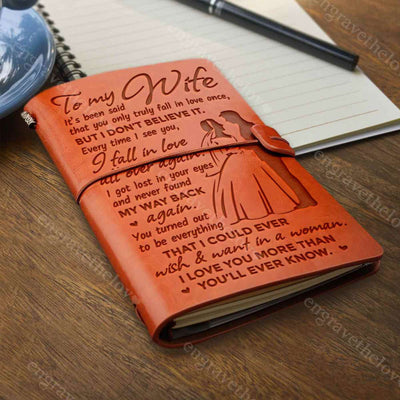 To my Wife
It's been said
that you only truly fall in love once,
BUT I DON'T BELIEVE IT.
Every time I see you,
I fall in love
all over again.
I got lost in your eyes
and never found
MY WAY BACK
again.
You turned out
to be everything
THAT I COULD EVER
wish & want in a woman.
I LOVE YOU MORE THAN
YOU'LL EVER KNOW.
engravethelove
engravethelove
engravethelove